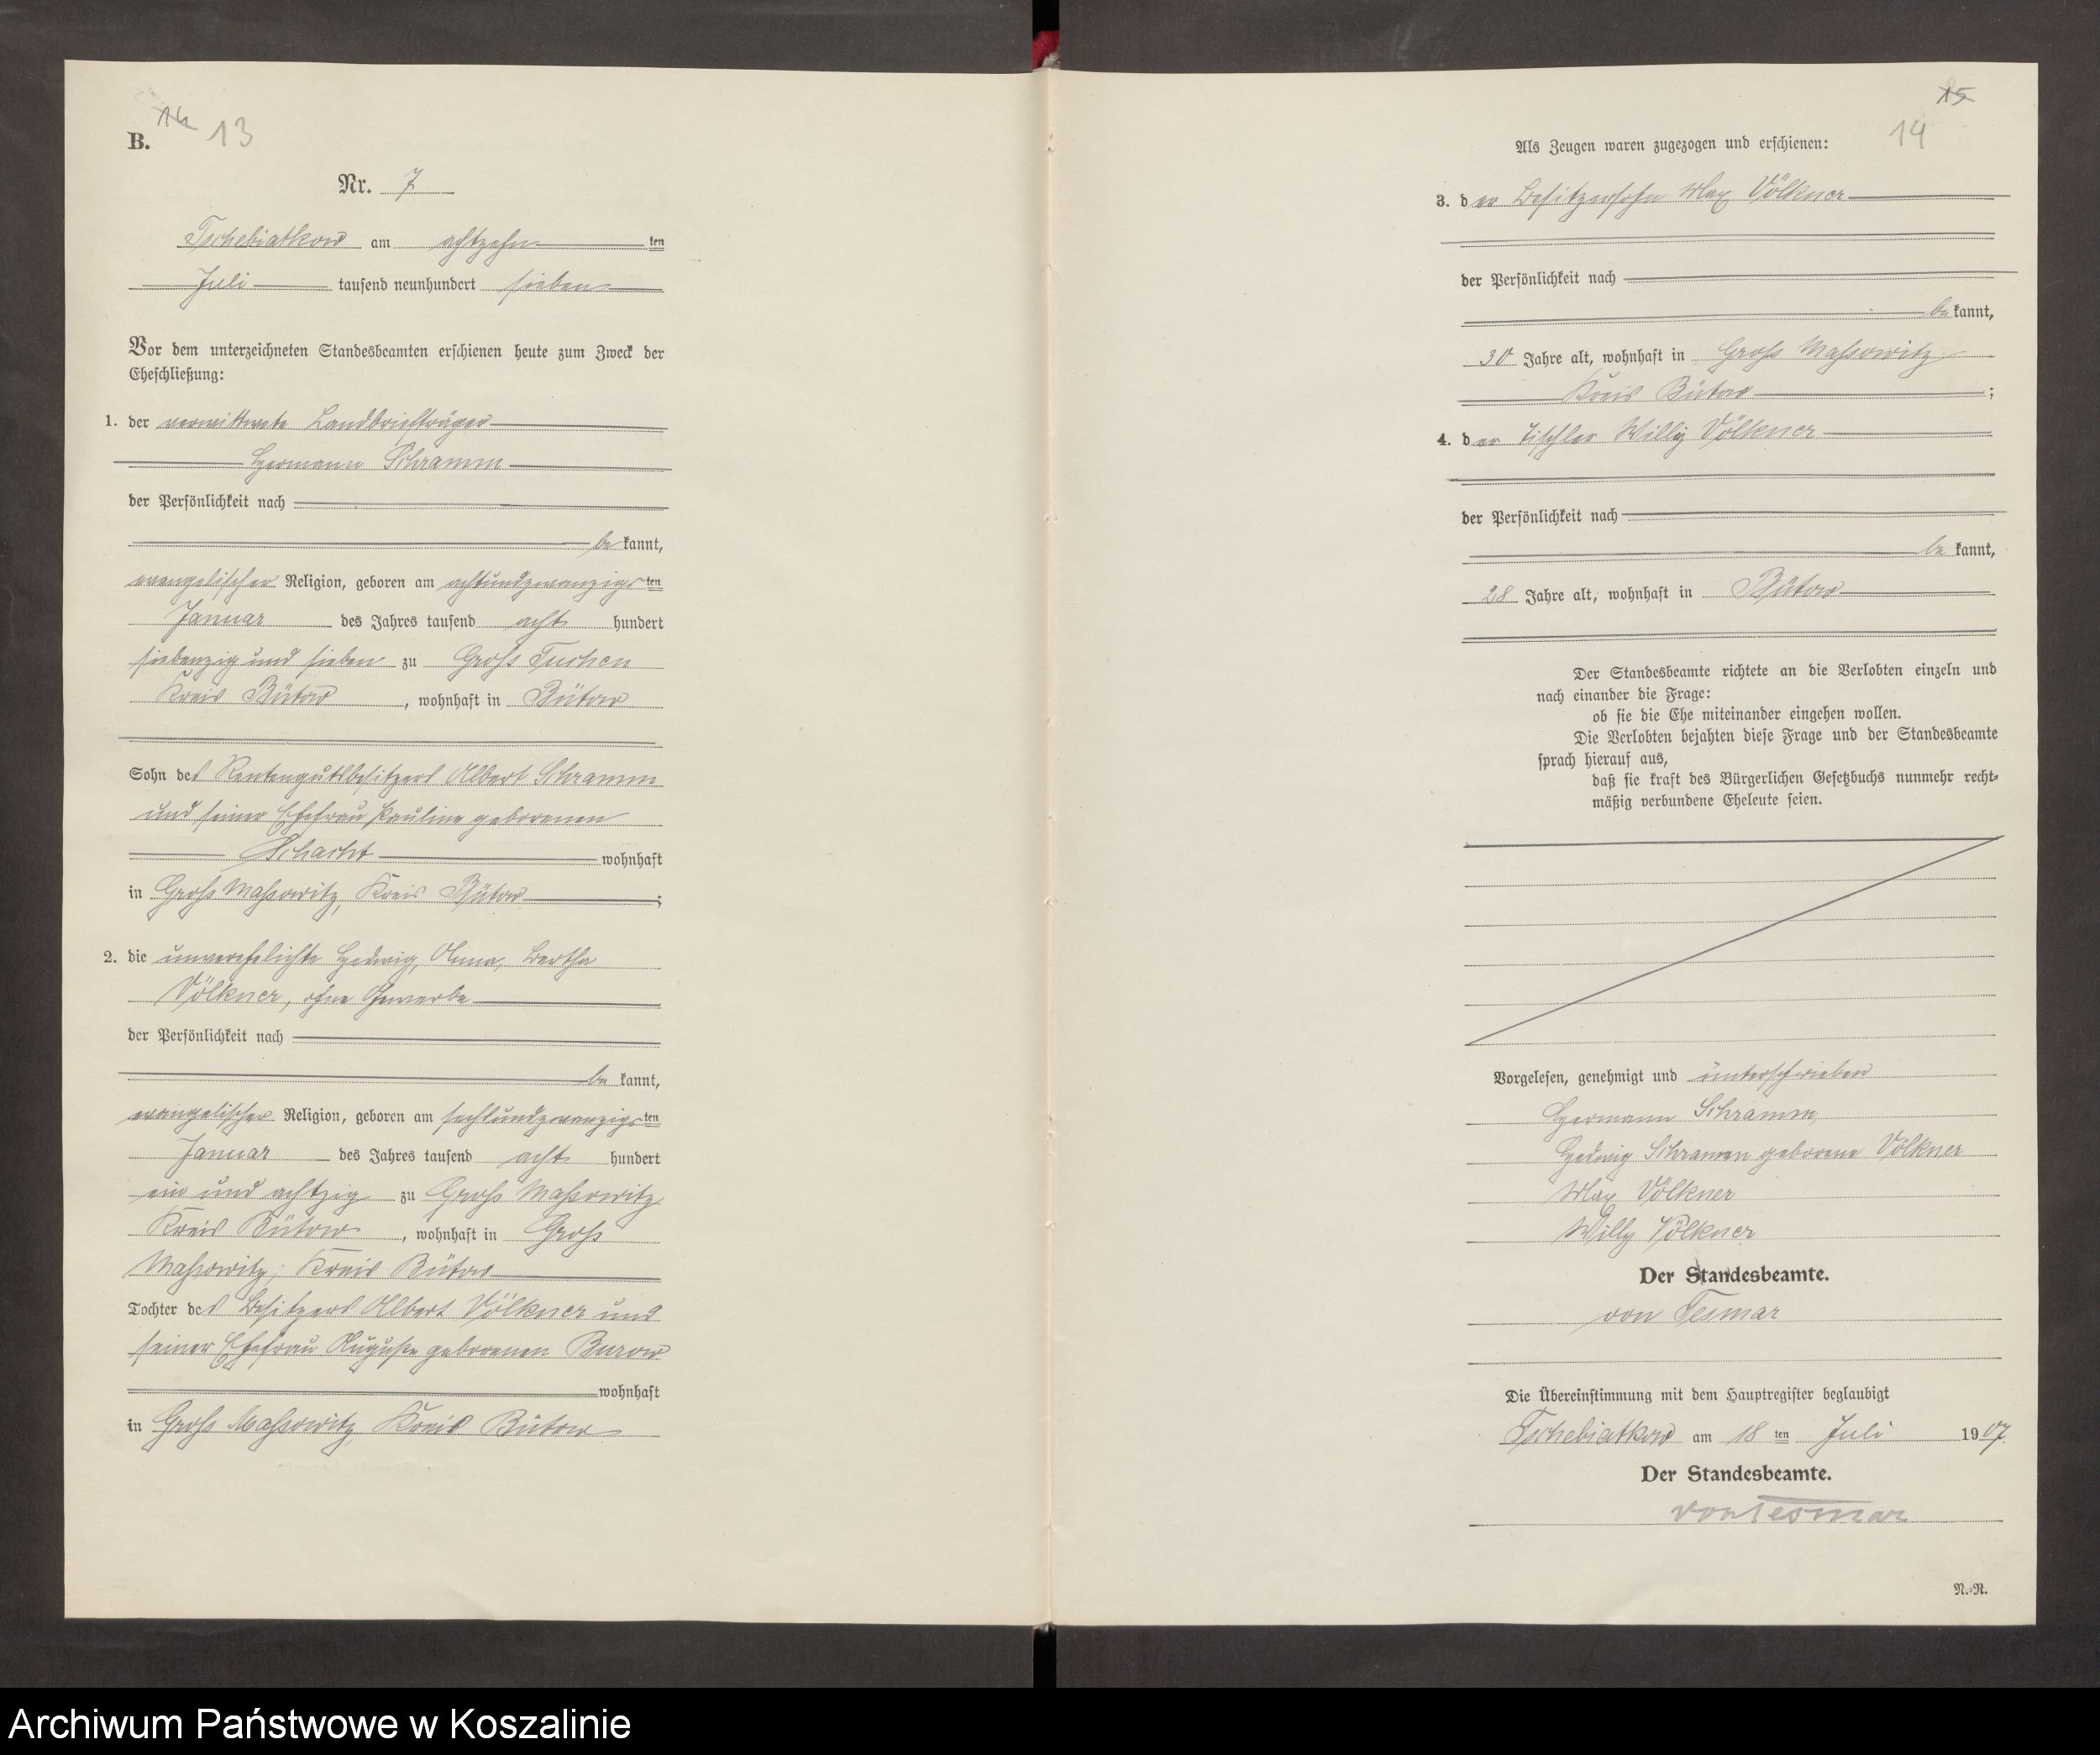 14 13
B.
Nr. 7
Tschebiatkow am achtzehnten
Juli tausend neunhundert sieben
Vor dem unterzeichneten Standesbeamten erschienen heute zum Zweck der
Eheschließung:
1. der verwittwete Landbriefträger
Hermann Schramm
der Persönlichkeit nach
bekannt,
evangelischer Religion, geboren am achtundzwanzigsten
Januar des Jahres tausend acht hundert
siebenzig und sieben zu Gross Tuchen
Kreis Bütow, wohnhaft in Bütow
Sohn des Rentengutsbesitzers Albert Schramm
und seiner Ehefrau Pauline geborenen
Schacht wohnhaft
in Gross Massowitz, Kreis Bütow;
2. die unverehelichte Hedwig, Anna, Bertha
Völkner, ohne Gewerbe
der Persönlichkeit nach
bekannt,
evangelischer Religion, geboren am sechsundzwanzigsten
Januar des Jahres tausend acht hundert
ein und achtzig zu Gross Massowitz
Kreis Bütow, wohnhaft in Gross
Massowitz, Kreis Bütow
Tochter des Besitzers Albert Völkner und
seiner Ehefrau Auguste geborenen Burow
wohnhaft
in Gross Massowitz Kreis Bütow
15
14
Als Zeugen waren zugezogen und erschienen:
3. der Besitzersohn Max Völkner
der Persönlichkeit nach
bekannt,
30 Jahre alt, wohnhaft in Gross Massowitz
Kreis Bütow;
4. der Tischler Willy Völkner
der Persönlichkeit nach
bekannt,
28 Jahre alt, wohnhaft in Bütow
Der Standesbeamte richtete an die Verlobten einzeln und
nach einander die Frage:
ob sie die Ehe miteinander eingehen wollen.
Die Verlobten bejahten diese Frage und der Standesbeamte
sprach hierauf aus,
daß sie kraft des Bürgerlichen Gesetzbuchs nunmehr recht-
mäßig verbundene Eheleute seien.
Vorgelesen, genehmigt und unterschrieben
Hermann Schramm
Hedwig Schramm geborene Völkner
Max Völkner
Willy Völkner
Der Standesbeamte.
von Tesmar
Die Übereinstimmung mit dem Hauptregister beglaubigt
Tschebiatkow am 18ten Juli 1907
Der Standesbeamte.
von Tesmar
N.-R.
Archiwum Państwowe w Koszalinie